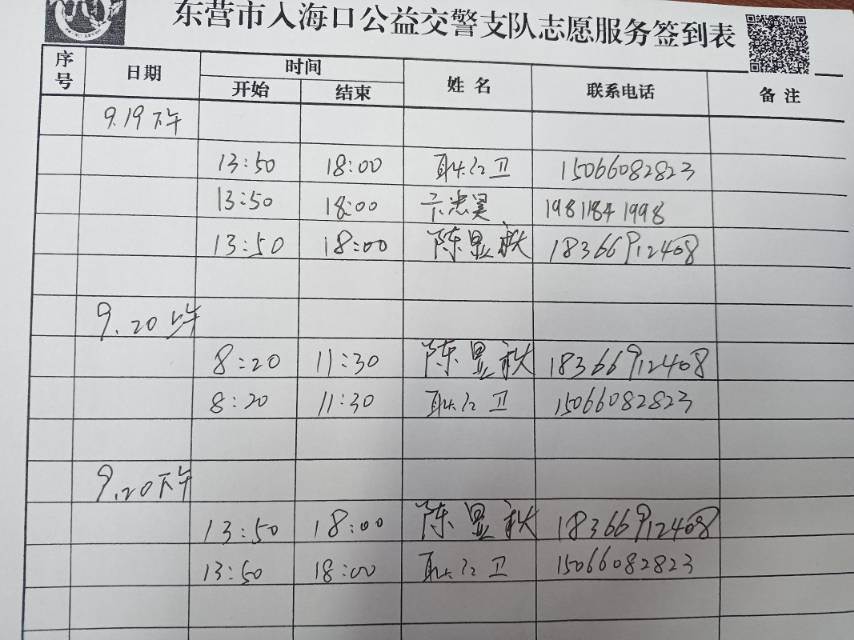 东营市入海口公益交警支队志愿服务签到表
序号 日期 时间 姓名 联系电话 备注
开始 结束
9.19下午
13:50 18:00 耿红卫 15066082823
13:50 18:00 忠昊 19811841998
13:50 18:00 陈显秋 18366912408
9.20上午
8:20 11:30 陈显秋 18366912408
8:20 11:30 耿红卫 15066082823
9.20下午
13:50 18:00 陈显秋 18366912408
13:50 18:00 耿红卫 15066082823